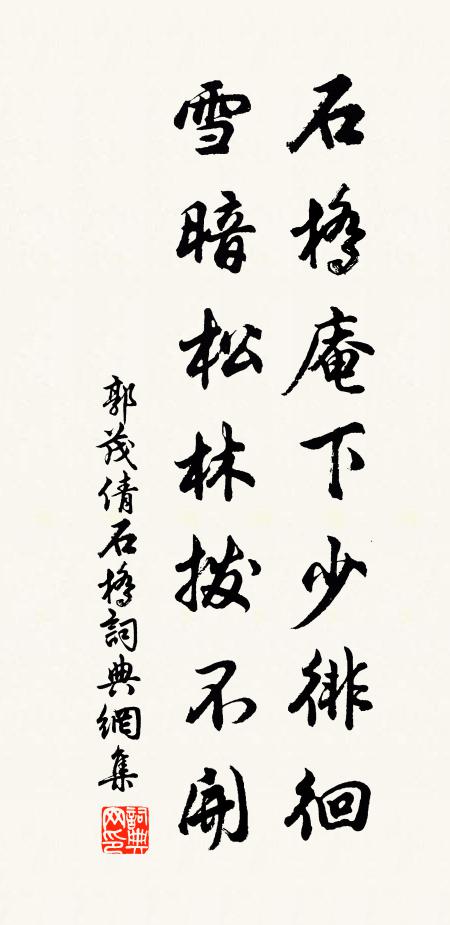 石橋庵下少徘徊
雪暗松林撥不開
郭茂倩石橋詞典網集
詞典網印